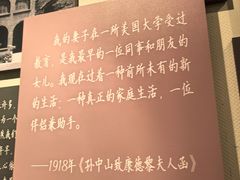 我的妻子在一所美国大学受过
教育，是我最早的一位同事和朋友的
女儿。我现在过着一种前所未有的新
的生活：一种真正的家庭生活，一位
伴侣兼助手。
——1918年《孙中山致康德黎夫人函》